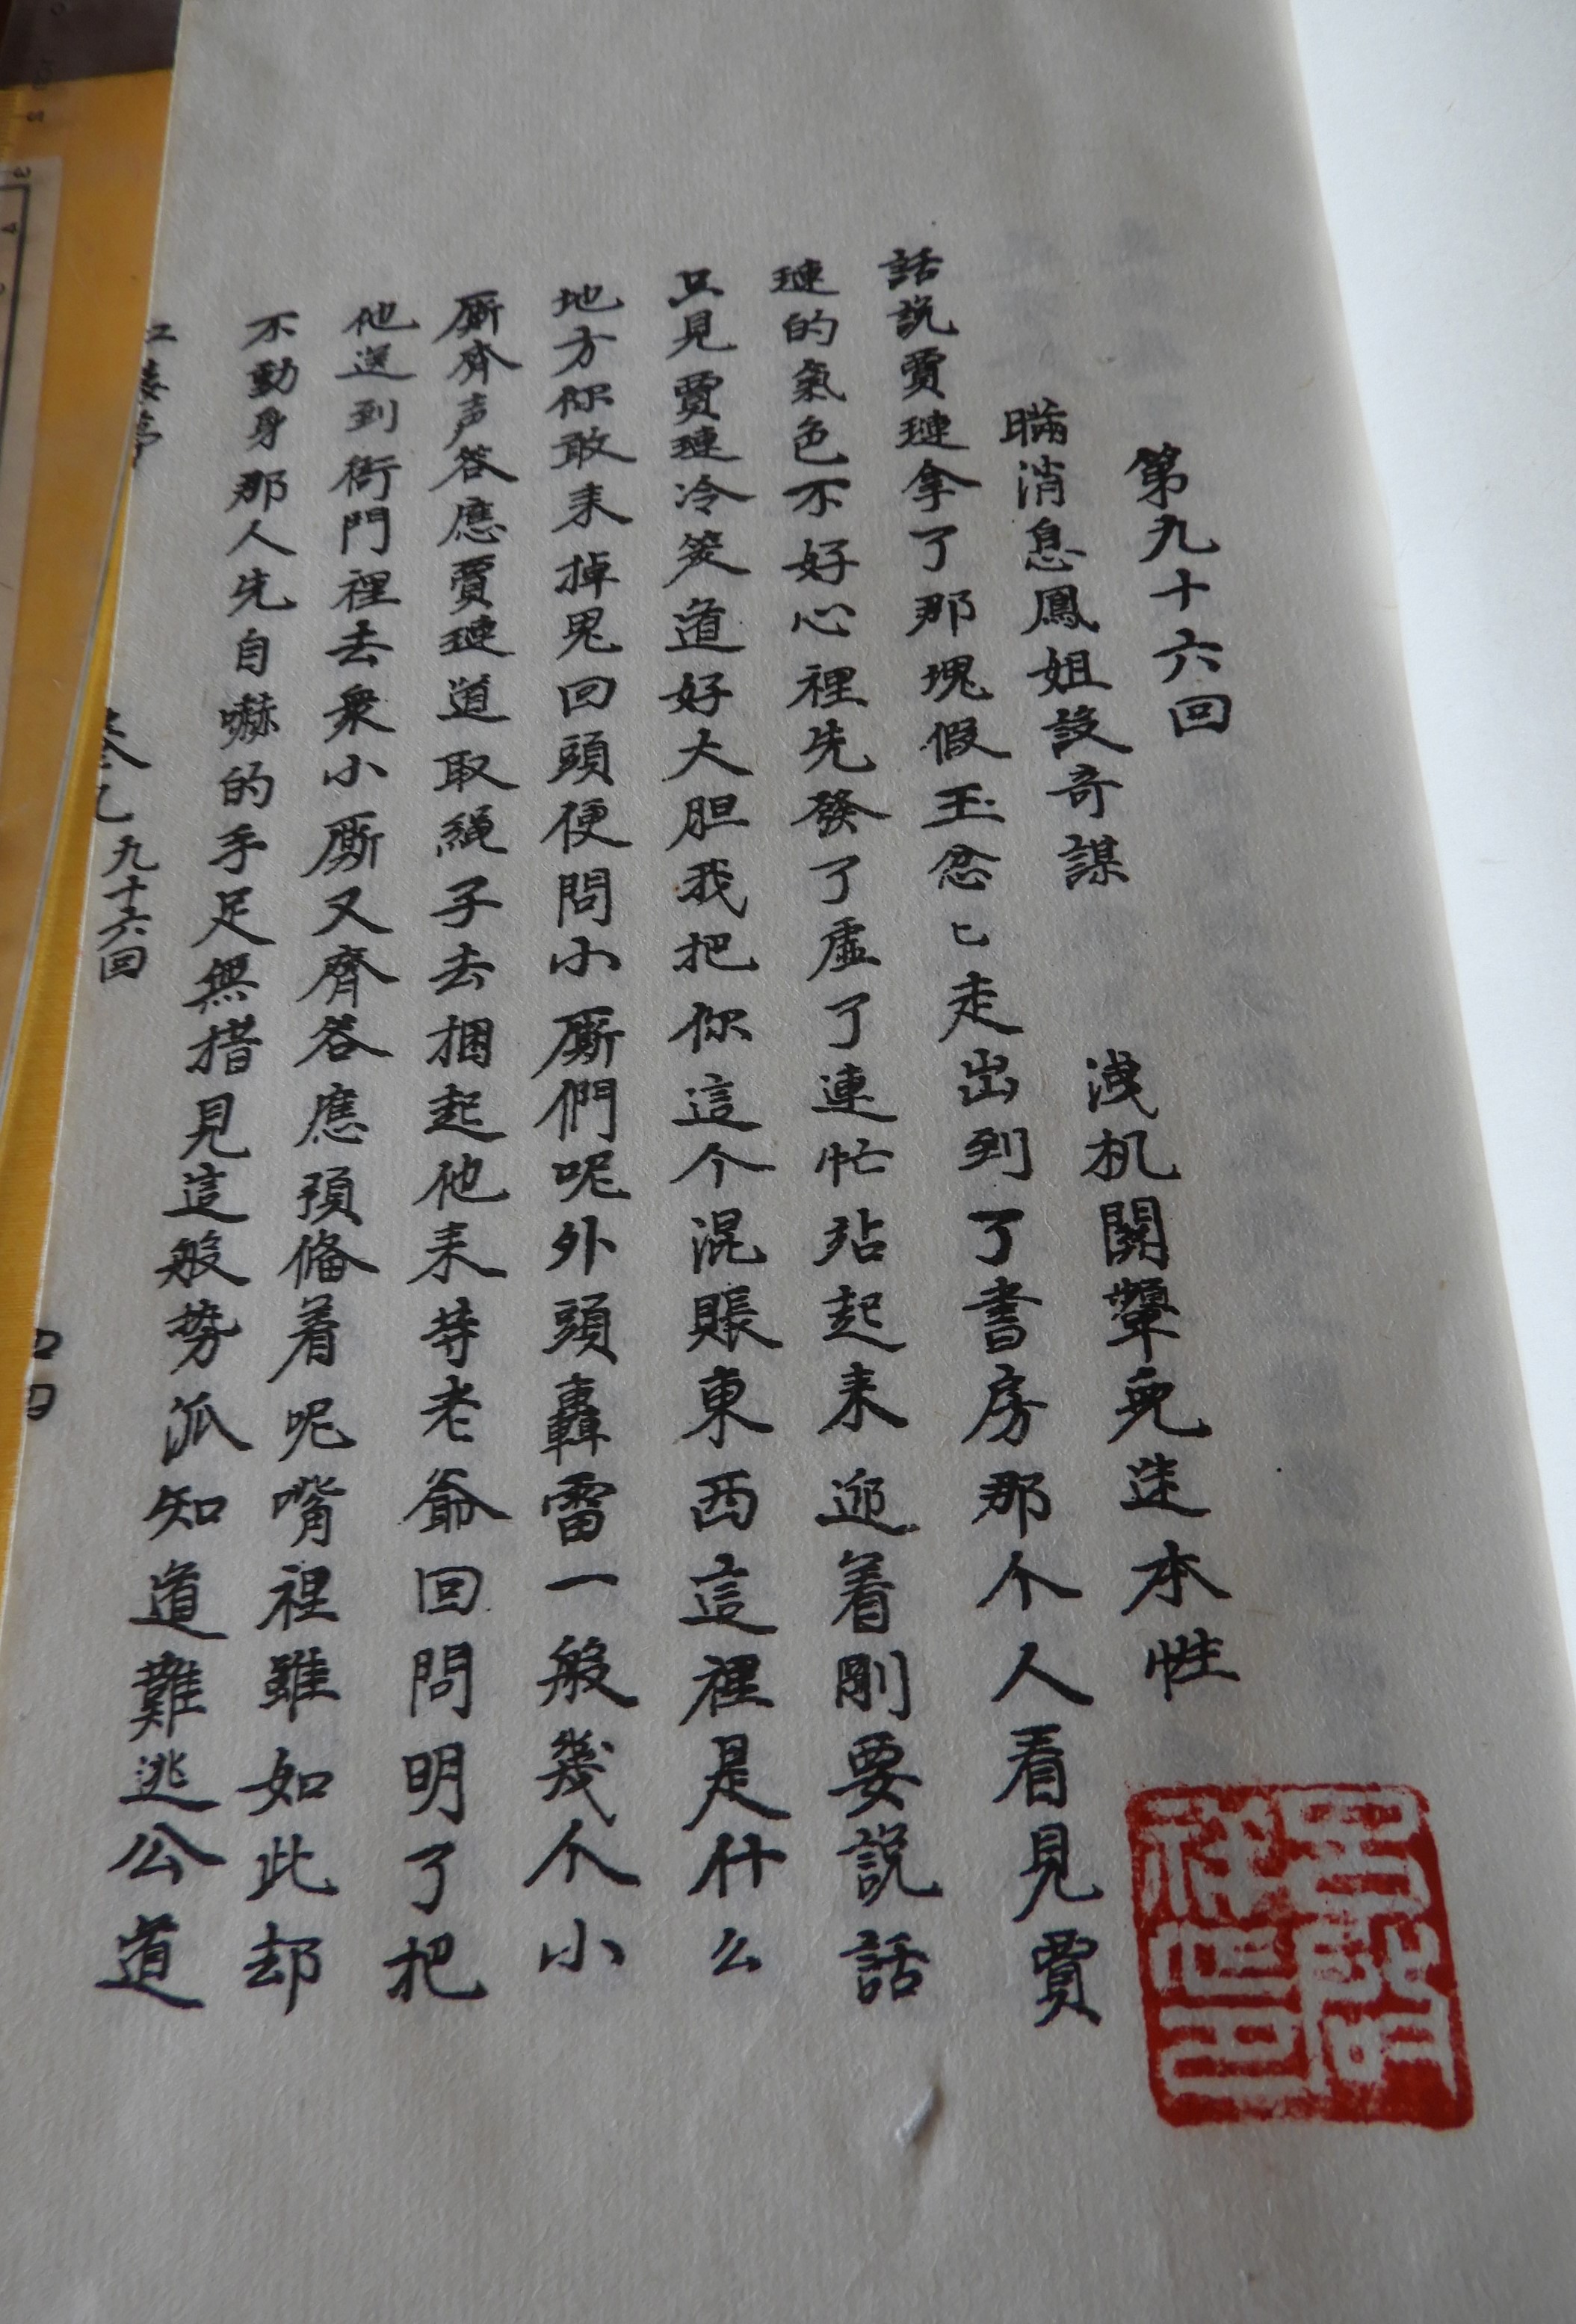 第九十六回
瞞消息鳳姐設奇謀　洩机關顰兒迷本性
話説賈璉拿了那塊假玉忿匕走出到了書房那个人看見賈
璉的氣色不好心裡先發了虛了連忙站起来迎着剛要説話
只見賈璉冷笑道好大胆我把你這个混賬東西這裡是什么
地方你敢来掉鬼回頭便問小厮們呢外頭轟雷一般幾个小
厮齊声答應賈璉道取繩子去捆起他来等老爺回問明了把
他送到衙門裡去衆小厮又齊答應預俻着呢嘴裡雖如此却
不動身那人先自嚇的手足無措見這般势派知道難逃公道
紅楼夢 卷九 九十六回